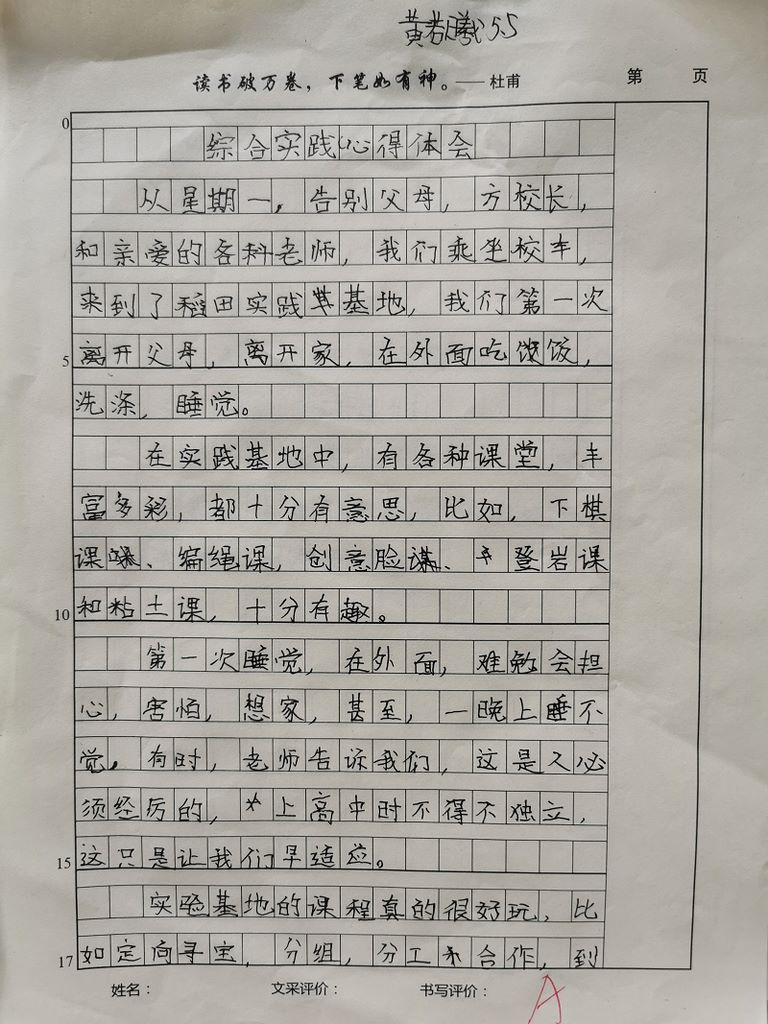 黄若曦 5.5
读书破万卷，下笔如有神。——杜甫 第 页
0
综合实践心得体会
从星期一，告别父母，方校长，
和亲爱的各科老师，我们乘坐校车，
来到了稻田实践基地，我们第一次
5 离开父母，离开家，在外面吃饭，
洗涤，睡觉。
在实践基地中，有各种课堂，丰
富多彩，都十分有意思，比如，下棋
课、编绳课，创意脸谱、登岩课
10 和粘土课，十分有趣。
第一次睡觉，在外面，难勉会担
心，害怕，想家，甚至，一晚上睡不
觉。有时，老师告诉我们，这是人必
须经历的，上高中时不得不独立，
15 这只是让我们早适应。
实验基地的课程真的很好玩，比
17 如定向寻宝，分组，分工合作，到
姓名： 文采评价： 书写评价： A